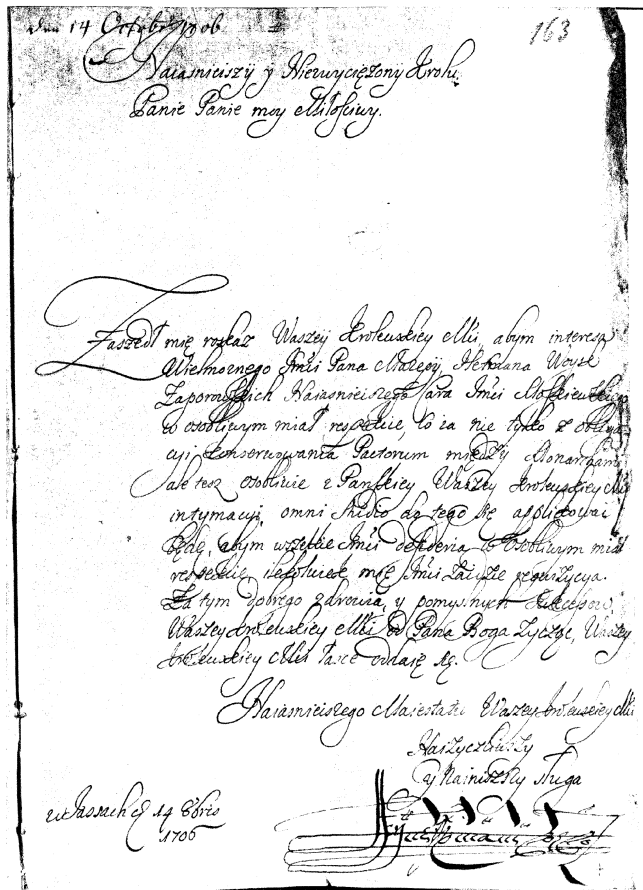 den 14 Octobr 1706
163
Naiasnieiszy y Niezwyciężony Krolu
Panie Panie moy Miłościwy.
Zaszedł mię roskaz Waszey Krolewskiey Mści, abym interesa
Wielmoznego Jmści Pana Mazepy, Hetmana Woysk
Zaporoskich Naiasnieiszego Cara Jmści Moskiewskiego
w osobliwym miał respekcie, to ia nie tylko z obliga
cyi konserwowania Pactorum między Monarchami
ale tesz osobliwie z Panskiey Waszey Krolewskiey Mści
intymacyi, omni studio do tego się applikować
będę, abym wszelkie Jmści desideria w osobliwym miał
respekcie, ilekolwiek mię Jmści zaidzie requizycya.
Za tym dobrego zdrowia, y pomyslnych sukcessow
Waszey Krolewskiey Mści od Pana Boga zycząc, Waszey
Krolewskiey Mści łasce oddaię się.
Naiasnieiszego Maiestatu Waszey Krolewskiey Mści
Naizyczliwszy
y Nainiszszy sługa
w Jassach d. 14 8bris
1706